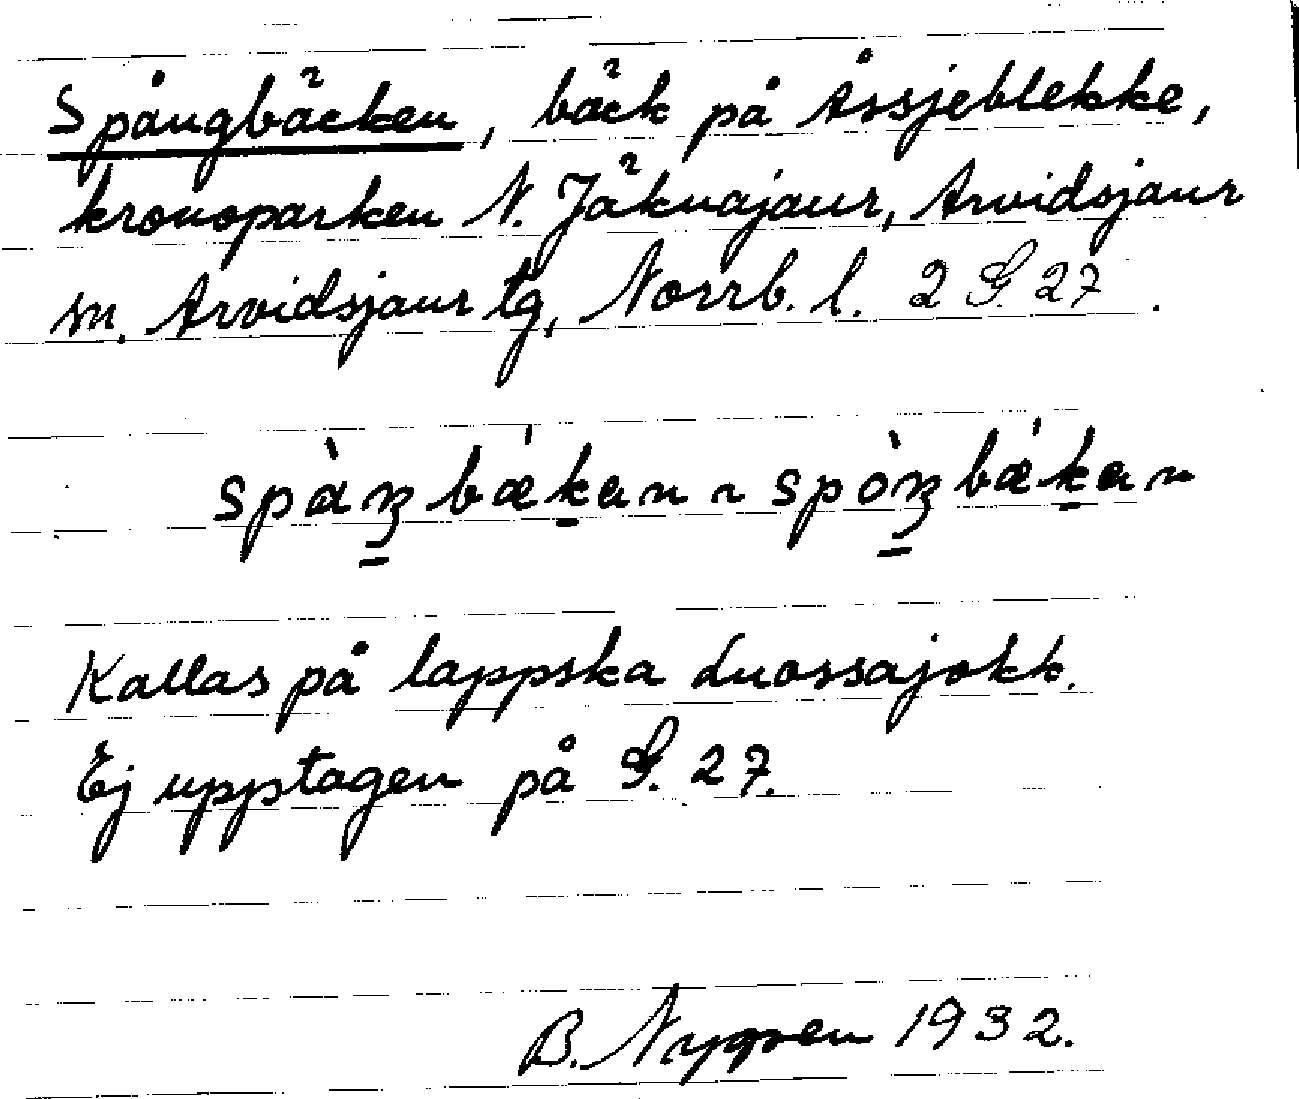 Spångbäcken, bäck på Åssjeblekke,
kronoparken N. Jäknajaur, Arvidsjaur
sn. Arvidsjaur tg, Norrb. l. 2 G. 27.
Kallas på lappska Luossajokk.
Ej upptagen på G. 27.
B. Nygren 1932.